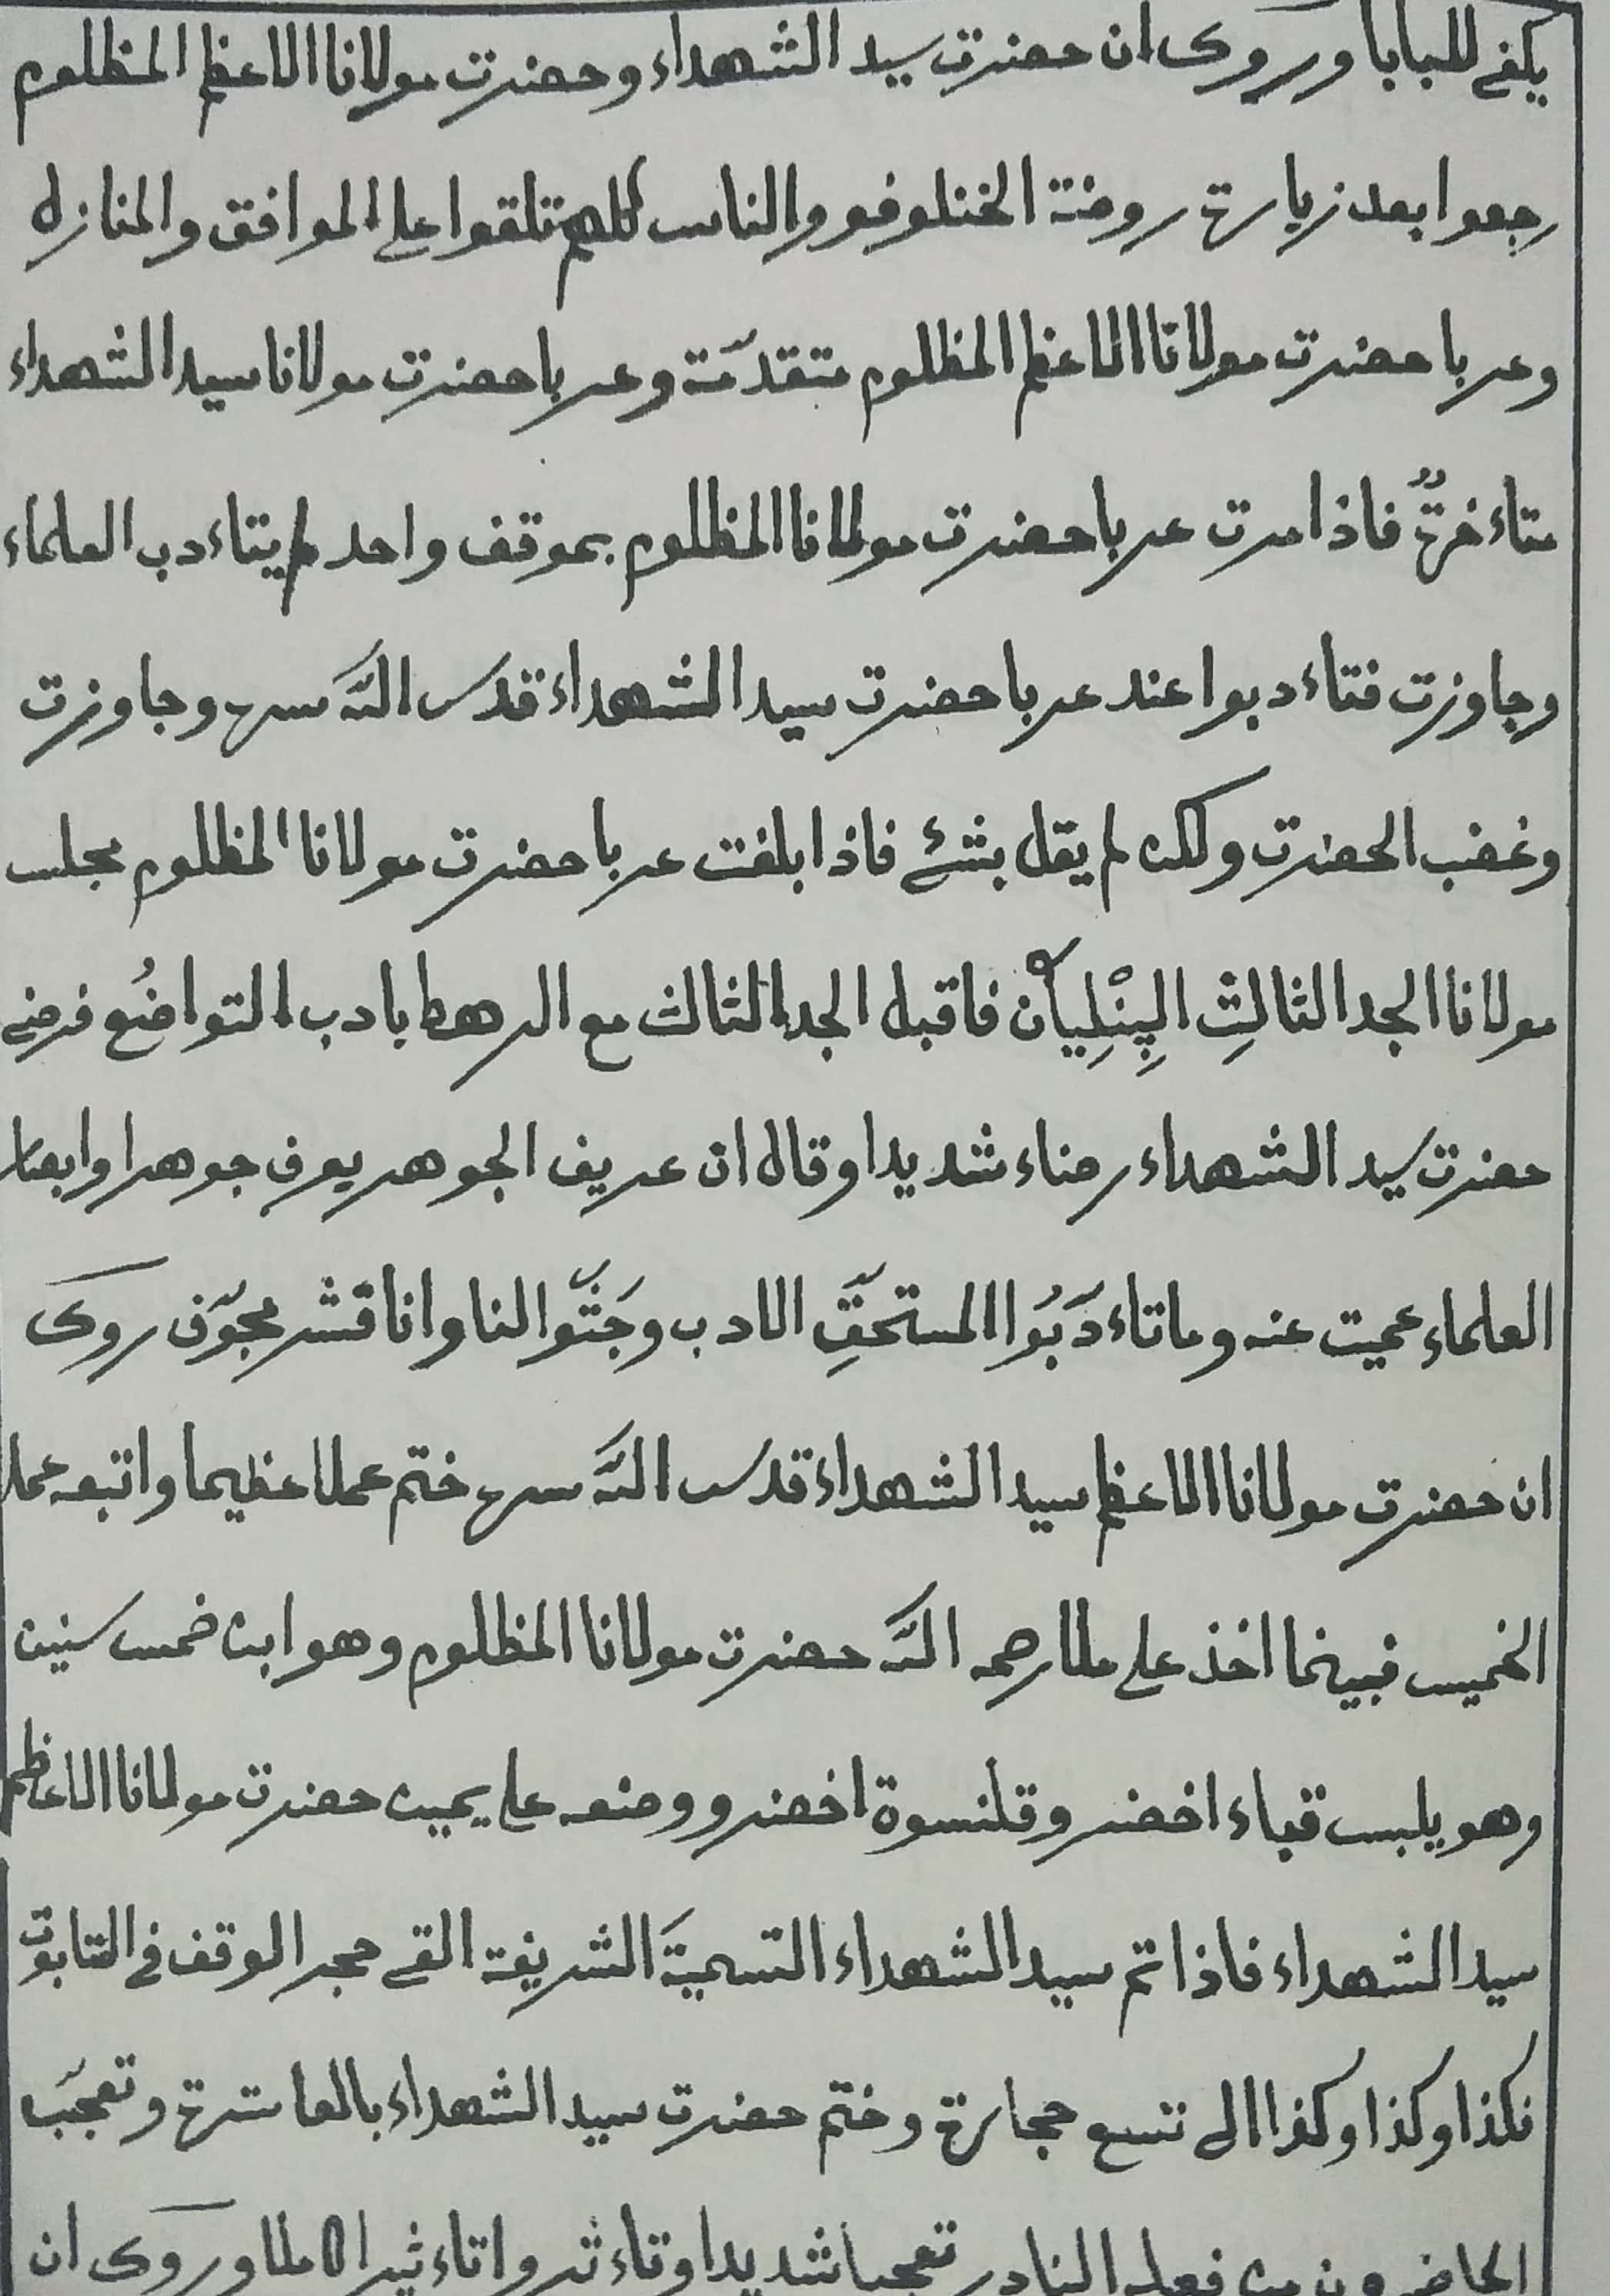 يكفے للبابا وروى ان حضرت سيد الشهداء وحضرت مولانا الاعظم المظلوم
رجعوا بعد زيارة روضة الخنلوفو والناس كلهم تلقوا على الموافق والمنازل
وعربا حضرت مولانا الاعظم المظلوم متقدّمة وعربا حضرت مولانا سيد الشهداء
متاءخرةٌ فاذا مرت عربا حضرت مولانا المظلوم بموقف واحد لم يتاءدب العلماء
وجاوزت فتاءدبوا عند عربا حضرت سيد الشهداء قدس اللّٰه سره وجاوزت
وغضب الحضرت ولكن لم يقل بشئ فاذا بلغت عربا حضرت مولانا المظلوم مجلس
مولانا الجد الثالثِ الپِنْلِيان فاقبل الجد الثالث مع الرهط بادب التواضُع فرضے
حضرت سيد الشهداء رضاء شديدا وقال ان عريف الجوهر يعرف جوهرا وابصار
العلماء عميت عنه وماتاءدَّبُوا المستحقِّ الادب وجَثَّوا لنا وانا قشر مجوّف روى
ان حضرت مولانا الاعظم سيد الشهداء قدس اللّٰه سره ختم عملا عظيما واتبعه عمل
الخميس فبينما اخذ على ملا رحمه اللّٰه حضرت مولانا المظلوم وهو ابن خمس سنين
وهو يلبس قباء اخضر وقلنسوة اخضر ووضعه على يمين حضرت مولانا الاعظم
سيد الشهداء فاذا تم سيد الشهداء التسميةَ الشريفة القے حجر الوقف فى التابوت
فكذا وكذا وكذا الى تسع حجارة وختم حضرت سيد الشهداء بالعاشرة وتعجّب
الحاضرون من فعله النادر تعجبا شديدا وتاءثروا تاءثيرا كاملا وروى ان